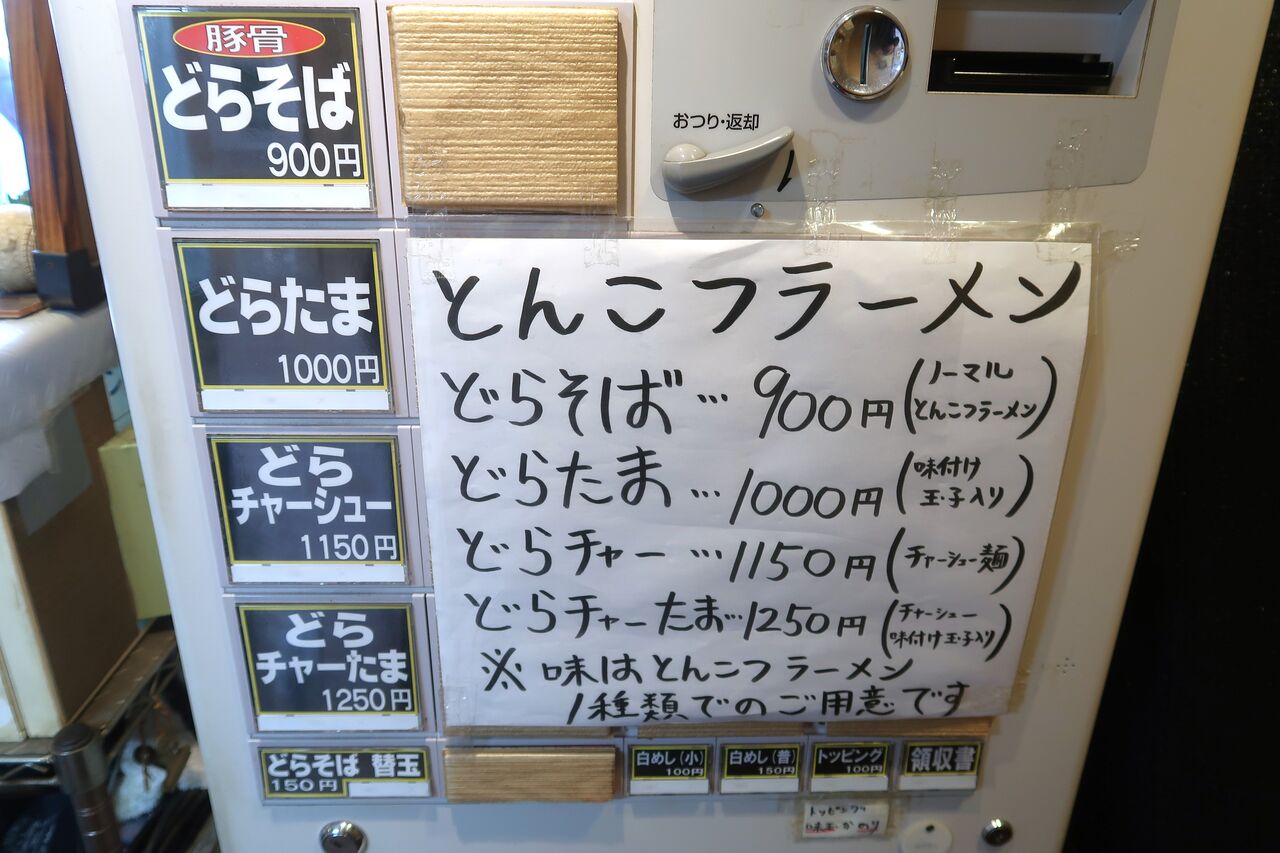 豚骨
どらそば
900円
どらたま
1000円
どら
チャーシュー
1150円
どら
チャーたま
1250円
どらそば 替玉
150円
おつり・返却
とんこつラーメン
どらそば…900円(ノーマル
とんこつラーメン)
どらたま…1000円(味付け
玉子入り)
どらチャー…1150円(チャーシュー麺)
どらチャーたま…1250円(チャーシュー
味付け玉子入り)
※味はとんこつラーメン
1種類でのご用意です
白めし(小)
100円
白めし(普)
150円
トッピング
100円
領収書
トッピング
味玉かのり